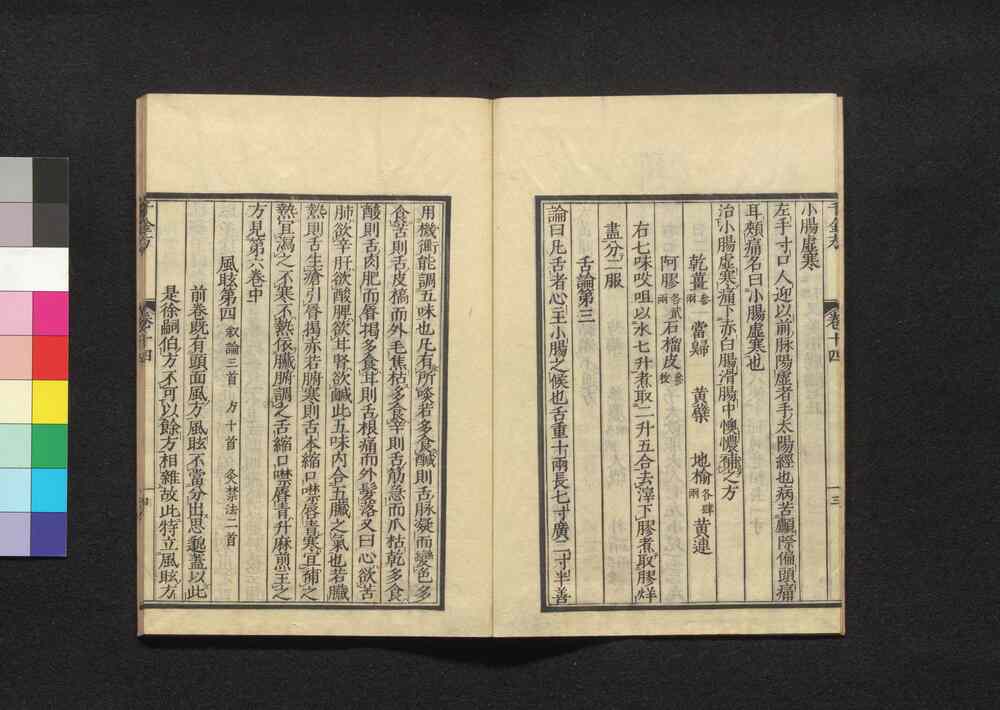 小腸虛寒
左手寸口人迎以前脉陽虛者手太陽經也病苦顱際偏頭痛
耳頰痛名曰小腸虛寒也
治小腸虛寒痛下赤白腸滑腸中懊憹補之方
乾薑參兩 當歸 黃蘗 地榆各肆兩 黃連
阿膠各貳兩 石榴皮參枚
右七味㕮咀以水七升煮取二升五合去滓下膠煮取膠烊
盡分三服
舌論第三
論曰凡舌者心主小腸之候也舌重十兩長七寸廣二寸半善
卷十四
三
用機衡能調五味也凡有所啖若多食鹹則舌脉凝而變色多
食苦則舌皮槁而外毛焦枯多食辛則舌筋急而爪枯乾多食
酸則舌肉肥而脣揭多食甘則舌根痛而外髮落又曰心欲苦
肺欲辛肝欲酸脾欲甘腎欲鹹此五味內合五臟之氣也若臟
熱則舌生瘡引脣揭赤若腑寒則舌本縮口噤脣青寒宜補之
熱宜瀉之不寒不熱依臟腑調之舌縮口噤脣青升麻煎主之
方見第六卷中
風眩第四叙論三首 方十首 灸禁法二首
前卷既有頭面風方風眩不當分出思邈蓋以此
是徐嗣伯方不可以餘方相雜故此特立風眩方
卷十四
四